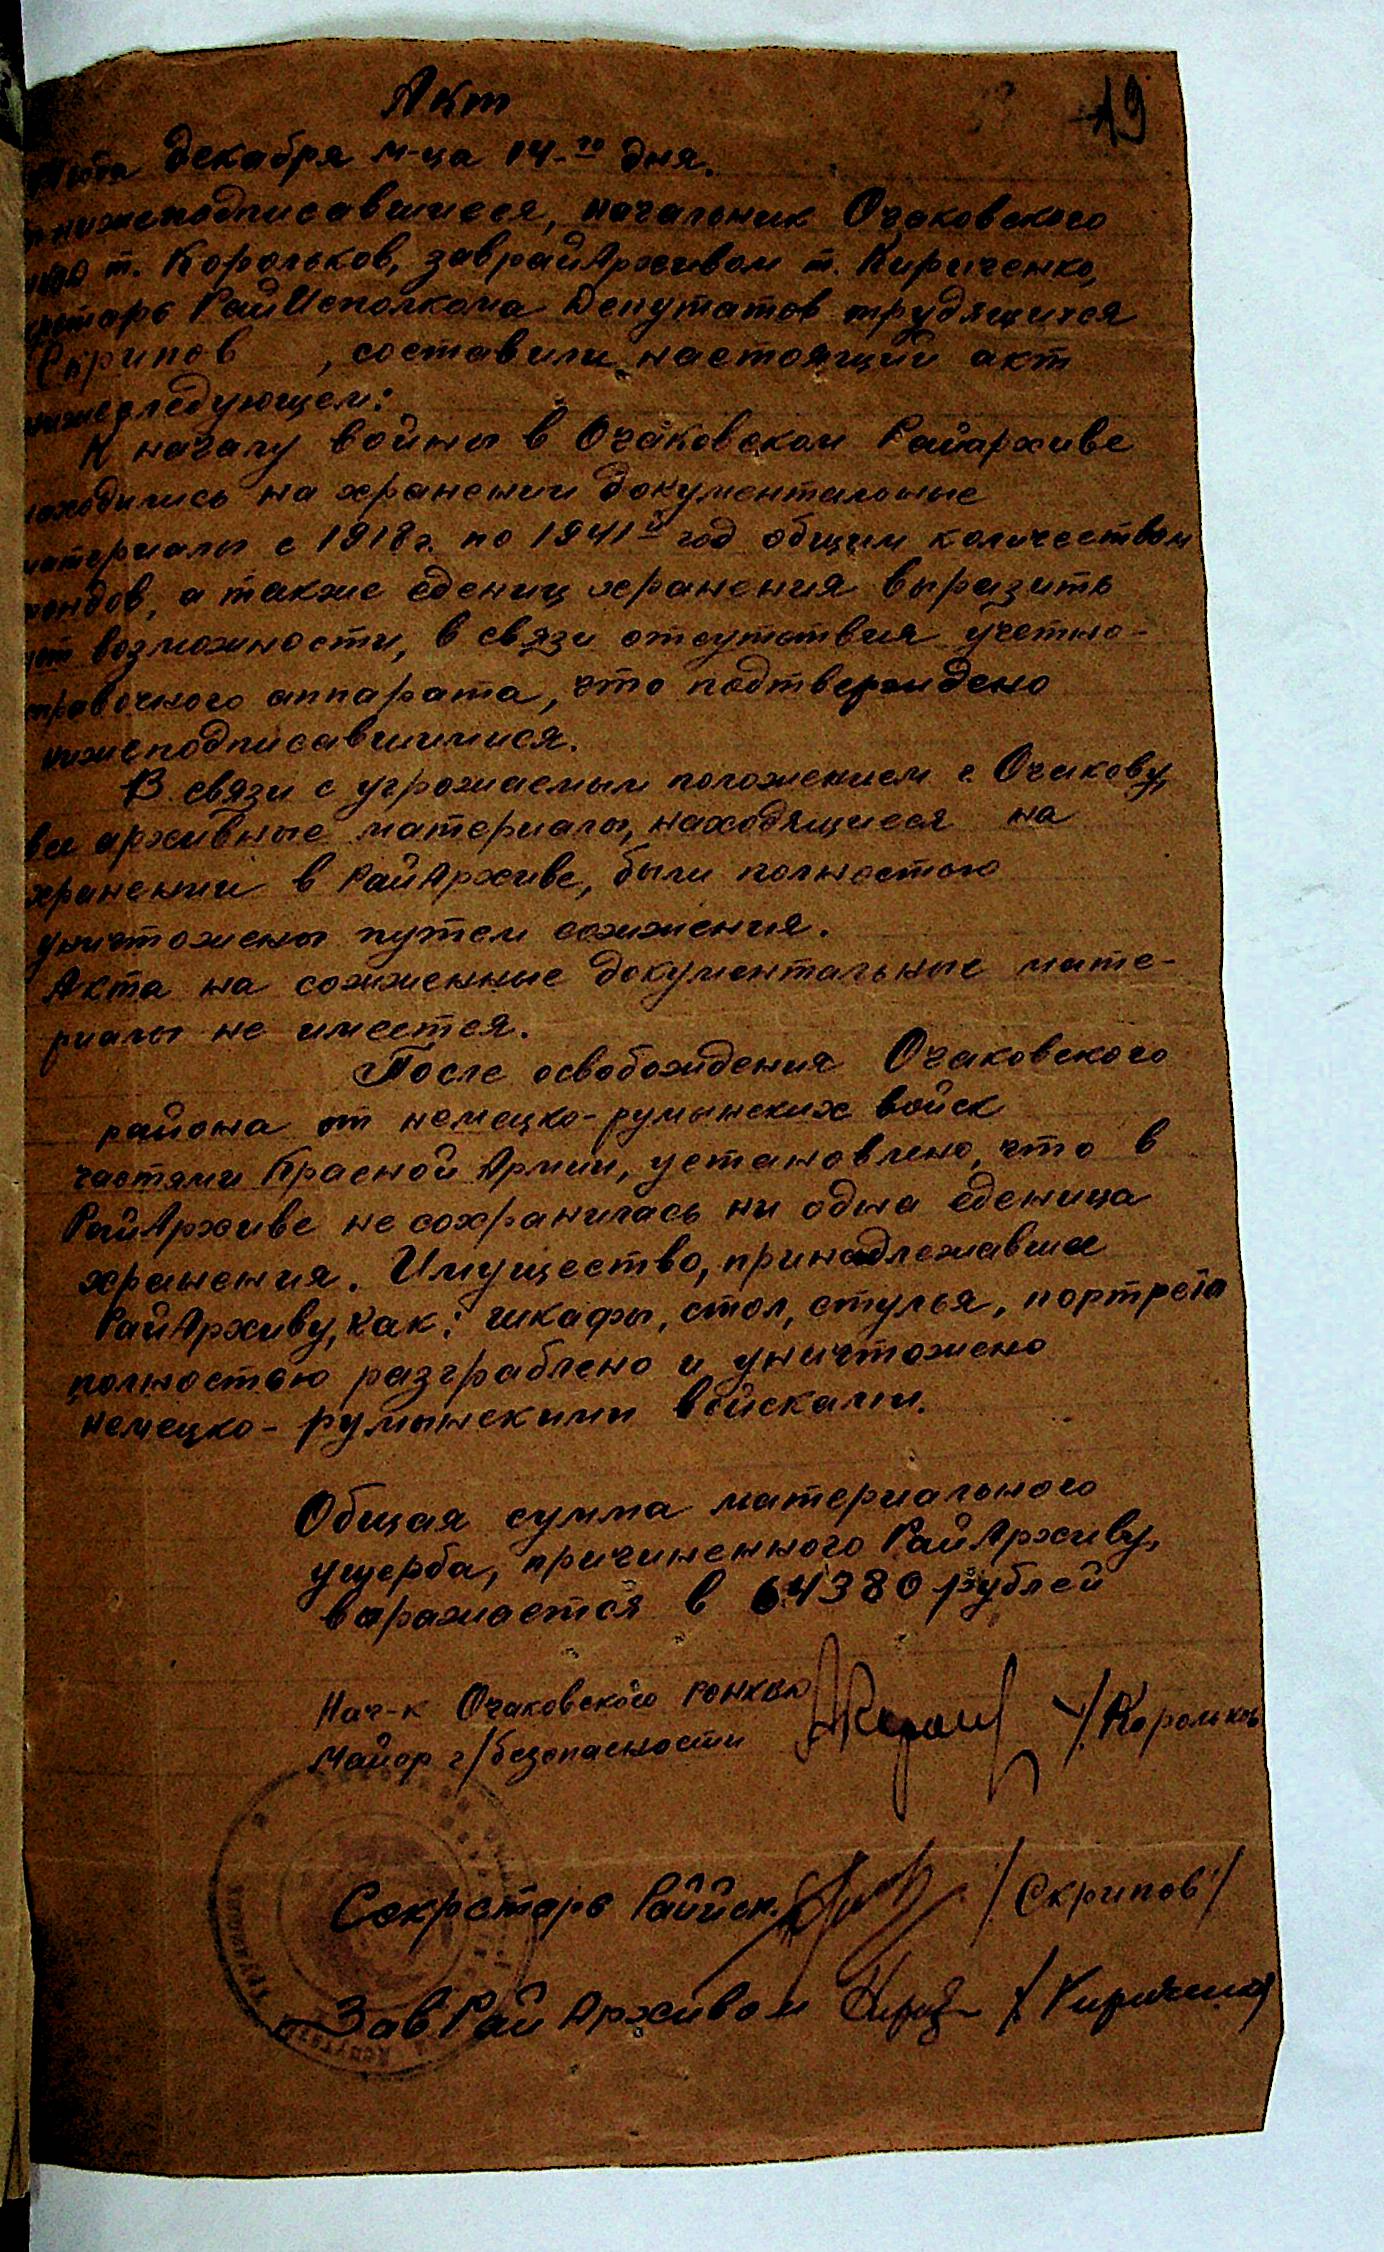 19
Акт
декабря м-ца 14-го дня.
нижеподписавшиеся, начальник Очаковского
т. Корольков, заврайАрхивом т. Кириченко,
кретарь РайИсполкома Депутатов трудящихся
Скрипов , составили настоящий акт
нижеследующем:
К началу войны в Очаковском Райархиве
находились на хранении документальные
материалы с 1918г. по 1941й год общим количеством
фондов, а также едениц хранения выразить
нет возможности, в связи отсутствия учетно-
справочного аппарата, что подтверждено
нижеподписавшимися.
В связи с угрожаемым положением г. Очакову,
все архивные материалы, находящиеся на
хранении в РайАрхиве, были полностью
уничтожены путем сожжения.
Акта на сожженные документальные мате-
риалы не имеется.
После освобождения Очаковского
района от немецко-румынских войск
частями Красной Армии, установлено, что в
РайАрхиве не сохранилась ни одна еденица
хранения. Имущество, принадлежавшее
РайАрхиву, как: шкафы, стол, стулья, портрета
полностью разграблено и уничтожено
немецко-румынскими войсками.
Общая сумма материального
ущерба, причиненного РайАрхиву,
выражается в 64380 рублей
Нач-к Очаковского РОНКВД
Майор г/безопасности /Корольков
Секретарь Райисп. /Скрипов/
Зав РайАрхивом /Кириченко/